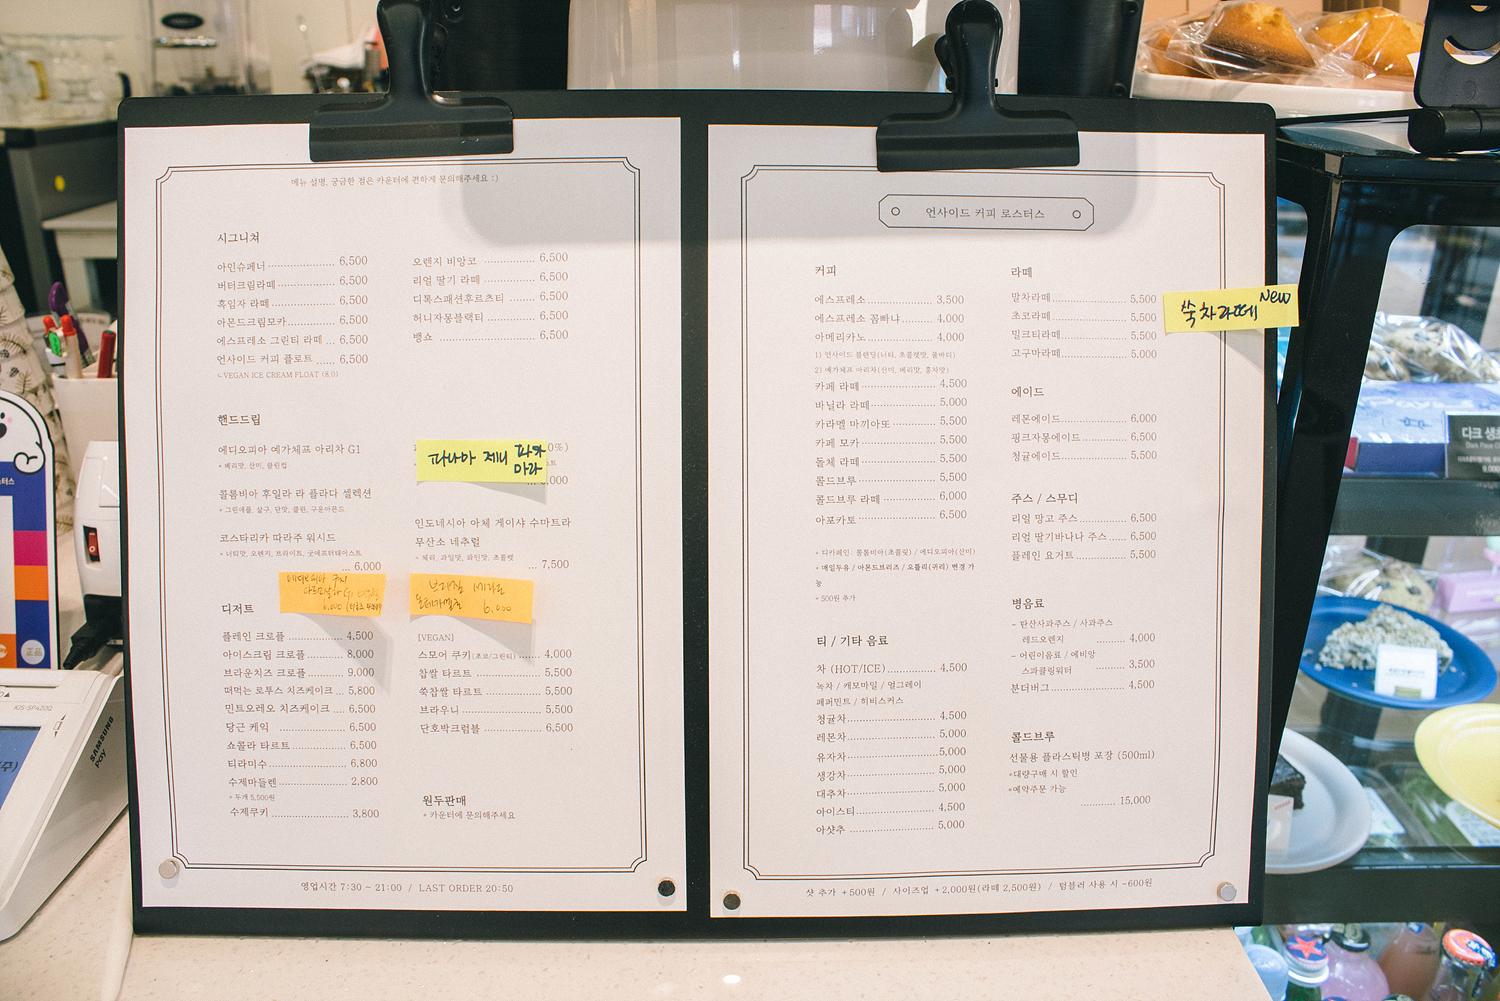 메뉴 설명, 궁금한 점은 카운터에 편하게 문의해주세요 :)
시그니쳐
아인슈페너 6,500
버터크림라떼 6,500
흑임자 라떼 6,500
아몬드크림모카 6,500
에스프레소 그린티 라떼 6,500
언사이드 커피 플로트 6,500
VEGAN ICE CREAM FLOAT (8.0)
오렌지 비앙코 6,500
리얼 딸기 라떼 6,500
디톡스패션후르츠티 6,500
허니자몽블랙티 6,500
뱅쇼 6,500
핸드드립
에디오피아 예가체프 아리차 G1
* 베리맛, 산미, 클린컵
콜롬비아 후일라 라 플라다 셀렉션
* 그린애플, 살구, 단맛, 클린, 구운아몬드
코스타리카 따라주 워시드
* 너티맛, 오렌지, 브라이트, 굿에프터테이스트
... 6,000
파나마 제니
0%)
인도네시아 아체 게이샤 수마트라
무산소 네추럴
* 체리, 과일맛, 와인맛, 초콜렛
... 7,500
6,000
디저트
플레인 크로플 4,500
아이스크림 크로플 8,000
브라운치즈 크로플 9,000
떠먹는 로투스 치즈케이크 5,800
민트오레오 치즈케이크 6,500
당근 케익 6,500
쇼콜라 타르트 6,500
티라미수 6,800
수제마들렌 2,800
* 두개 5,500원
수제쿠키 3,800
[VEGAN]
스모어 쿠키(초코/그린티) 4,000
찹쌀 타르트 5,500
쑥찹쌀 타르트 5,500
브라우니 5,500
단호박크럼블 6,500
원두판매
* 카운터에 문의해주세요
영업시간 7:30 ~ 21:00 / LAST ORDER 20:50
언사이드 커피 로스터스
커피
에스프레소 3,500
에스프레소 꼼빠냐 4,000
아메리카노 4,000
1) 언사이드 블렌딩(너티, 초콜렛맛, 풀바디)
2) 예가체프 아리차(산미, 베리맛, 홍차맛)
카페 라떼 4,500
바닐라 라떼 5,000
카라멜 마끼아또 5,500
카페 모카 5,500
돌체 라떼 5,500
콜드브루 5,500
콜드브루 라떼 6,000
아포카토 6,500
* 디카페인: 콜롬비아(초콜릿) / 에디오피아(산미)
* 매일두유 / 아몬드브리즈 / 오틀리(귀리) 변경 가
능
* 500원 추가
티 / 기타 음료
차 (HOT/ICE) 4,500
녹차 / 캐모마일 / 얼그레이
페퍼민트 / 히비스커스
청귤차 4,500
레몬차 5,000
유자차 5,000
생강차 5,000
대추차 5,000
아이스티 4,500
아샷추 5,000
라떼
말차라떼 5,500
초코라떼 5,500
밀크티라떼 5,500
고구마라떼 5,000
쑥차라떼 New
에이드
레몬에이드 6,000
핑크자몽에이드 6,500
청귤에이드 5,500
주스 / 스무디
리얼 망고 주스 6,500
리얼 딸기바나나 주스 6,500
플레인 요거트 5,500
병음료
- 탄산사과주스 / 사과주스
레드오렌지 4,000
- 어린이음료 / 에비앙
스파클링워터 3,500
분더버그 4,500
콜드브루
선물용 플라스틱병 포장 (500ml)
*대량구매 시 할인
*예약주문 가능
15,000
샷 추가 +500원 / 사이즈업 +2,000원(라떼 2,500원) / 텀블러 사용 시 -600원
SAMSUNG
pay
KIS-SP420Q
正品